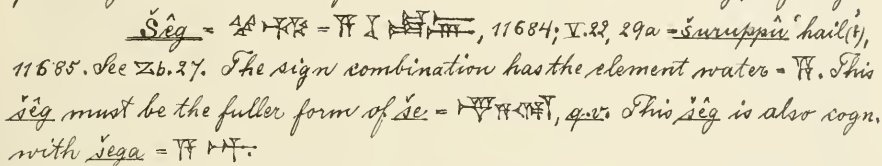 Šêg = = 𒀀 , 11684; V. 22, 29a = šuruppû 'hail(?),
11685. See Zb. 27. The sign combination has the element water = 𒀀. This
šêg must be the fuller form of še = , q.v. This šêg is also cogn.
with šega = 𒀀